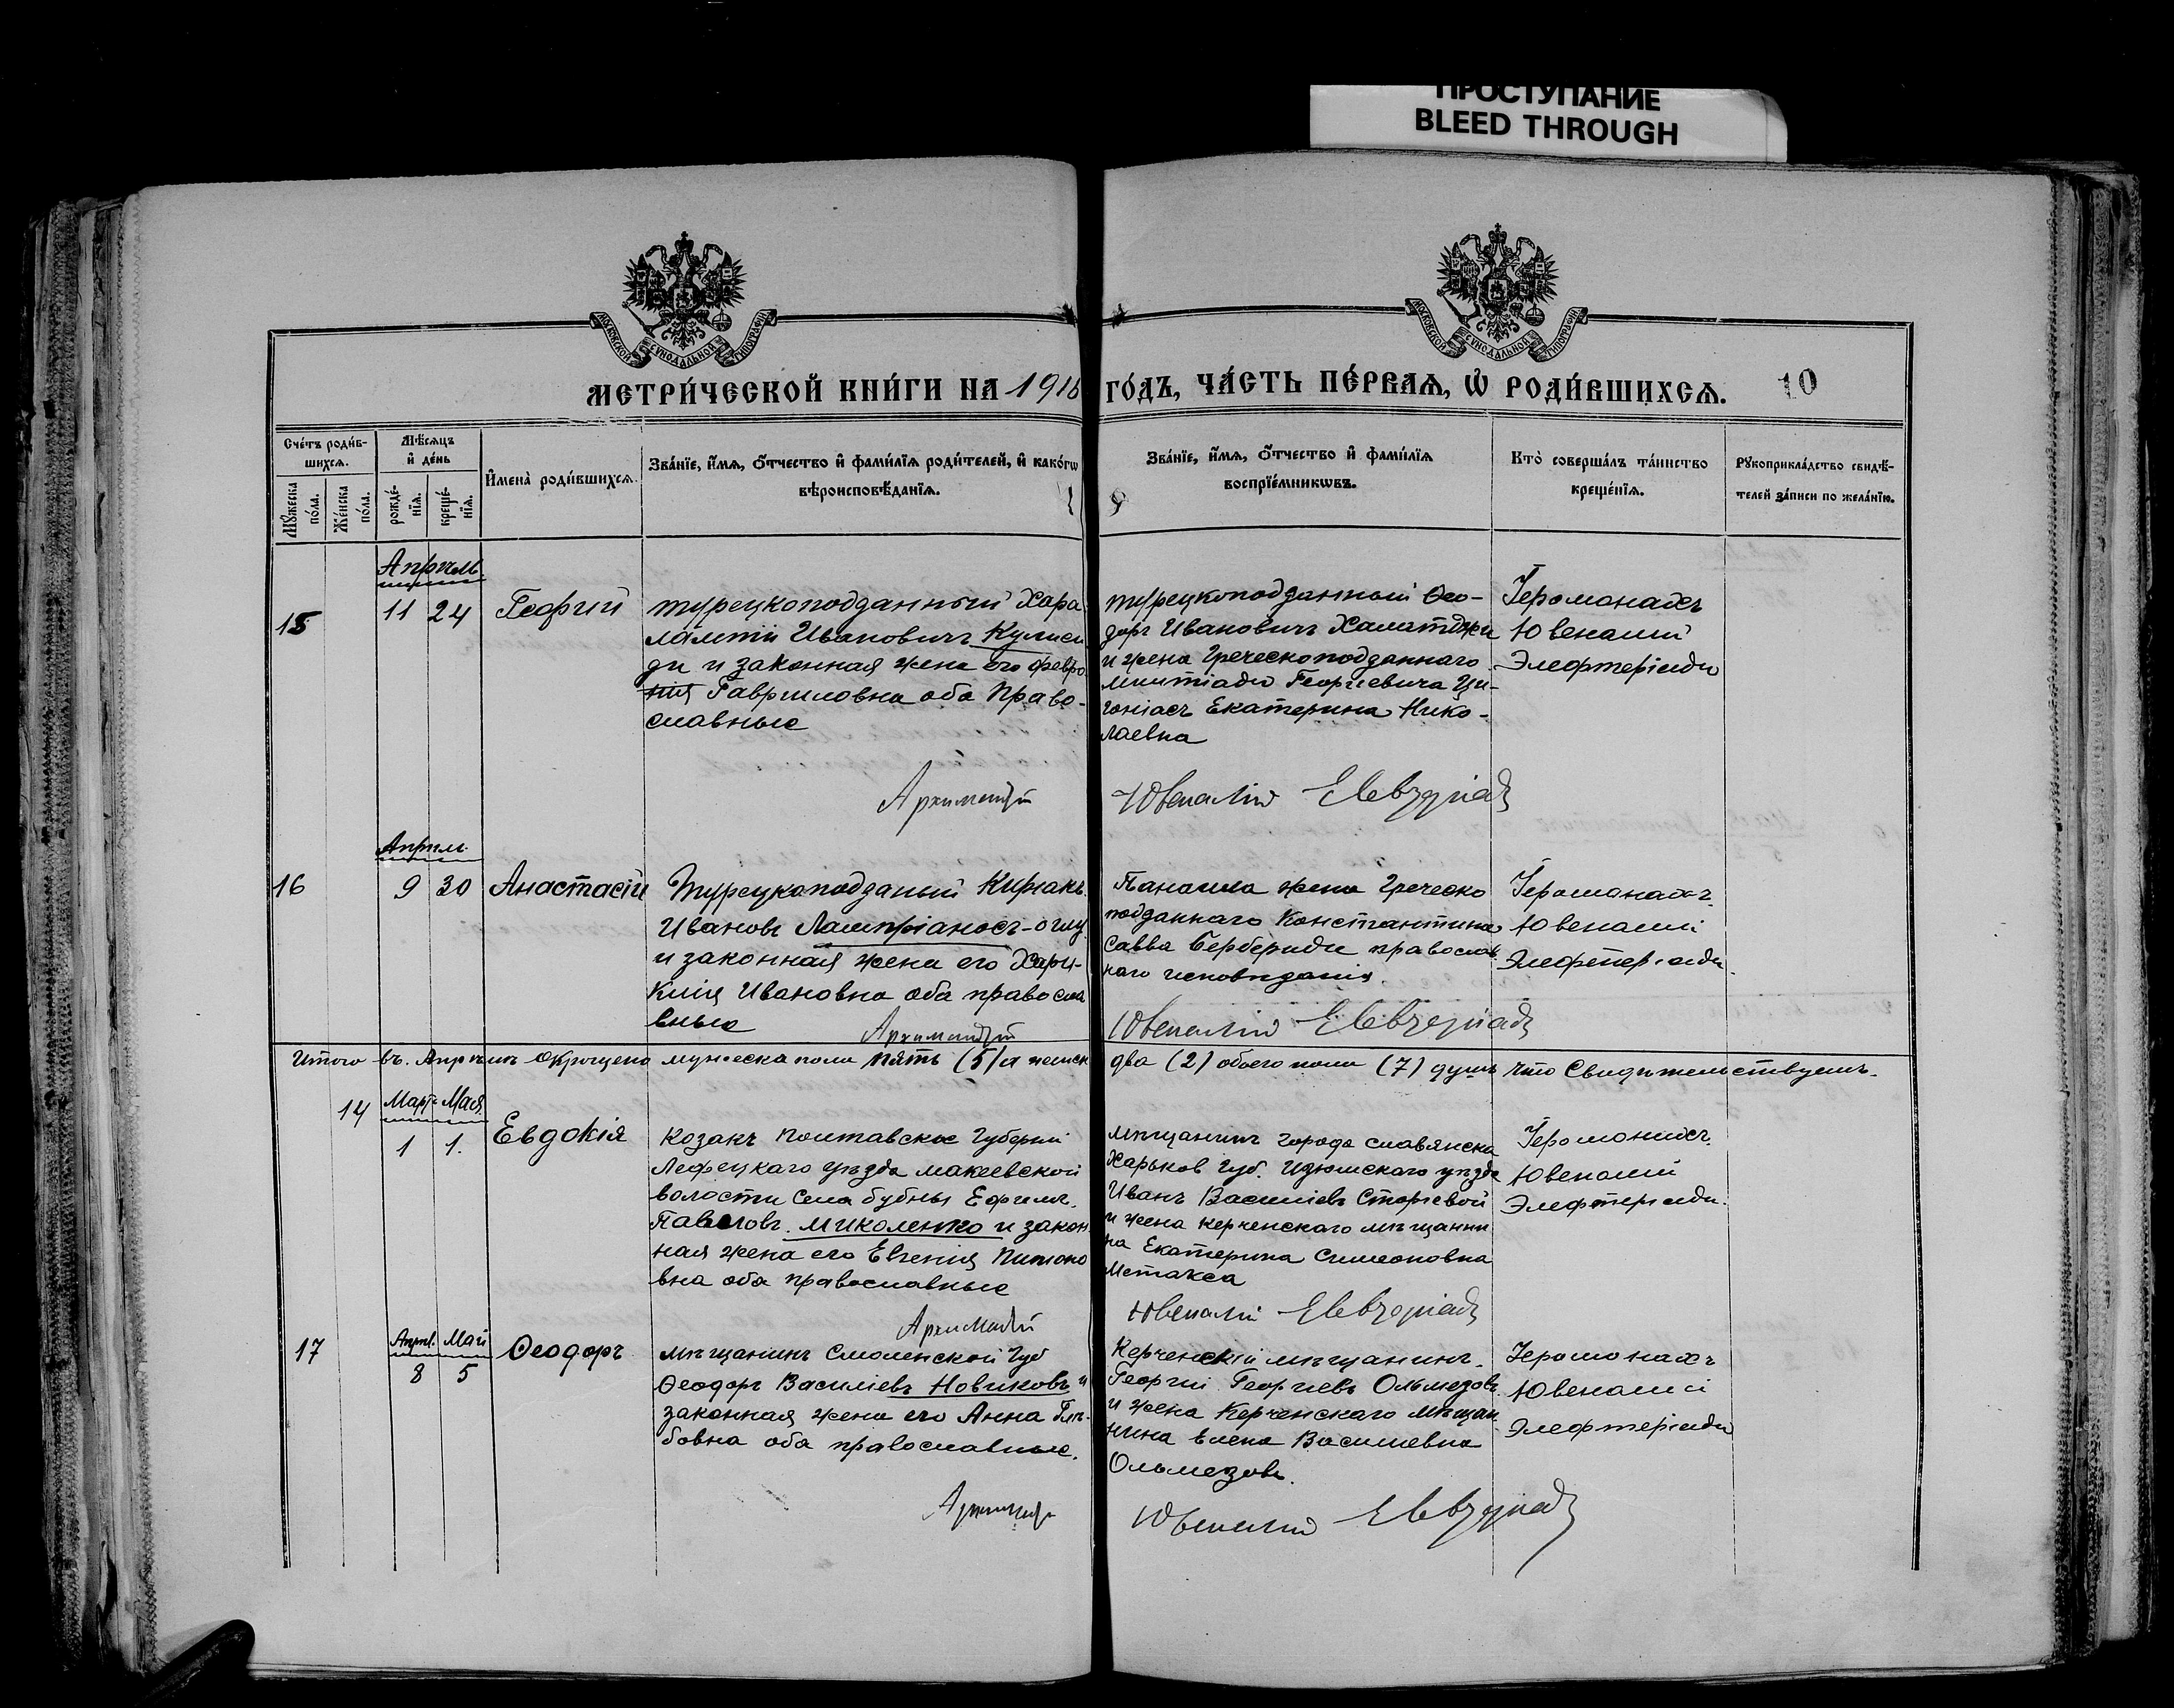 ПРОСТУПАНИЕ
BLEED THROUGH
МОСКОВСКОЙ СУНОДАЛЬНОЙ ТИПОГРАФІИ
МОСКОВСКОЙ СУНОДАЛЬНОЙ ТИПОГРАФІИ
МЕТРИ́ЧЕСКОЙ КНИ́ГИ НА 1916 ГО́ДЪ, ЧА́СТЬ ПЕ́РВАѦ, Ѡ҆ РОДИ́ВШИХСѦ. 10
Сче́тъ роди́в-
шихсѧ.
Мꙋ́жеска по́ла.
Же́нска по́ла.
Мѣ́сѧцъ
и҆ де́нь
рожде́-
нїѧ.
креще́-
нїѧ.
И҆мена̀ роди́вшихсѧ.
Зва́нїе, и҆́мѧ, ѻ҆́тчество и҆ фамѝлїѧ роди́телей, и҆ како́гѡ
вѣроисповѣ́данїѧ.
Зва́нїе, и҆́мѧ, ѻ҆́тчество и҆ фами́лїѧ
воспрїе́мникѡвъ.
Кто̀ соверша́лъ та́инство
креще́нїѧ.
Рꙋкоприкла́дство свидѣ́-
телей за́писи по жела́нїю.
Апрѣль
15
11 24
Георгій
турецкоподданный Хара
лампій Ивановичъ
ди и законная жена его Февро
нія Гавриловна оба Право-
славные
турецкоподданный Ѳео-
доръ Ивановичъ
и жена греческоподданнаго
Милтіади Георгіевича Ци-
гоніасъ Екатерина Нико-
лаевна
Іеромонахъ
Ювеналій
Элефтеріади
Ювеналій
Апрѣль
16
9 30
Анастасій
Турецкоподданый Киріакъ
Ивановъ Лампріаносъ-оглу
и законная жена его Хари-
клія Ивановна оба правосла
вные
жена греческо
подданнаго Константина
Савва Бербериди православ
наго исповѣданія.
Іеромонахъ
Ювеналій
Элефтеріади.
Ювеналій
Итого въ Апрѣлѣ Окрещено мужеска пола пять (5) а женск два (2) обоего пола (7) душъ что Свидѣтельствуемъ.
14
Мартъ Мая
1 1.
Евдокія
Козакъ Полтавской Губерніи
уѣзда Макеевской
волости Села Бубны Ефимъ
Павловъ Миколенко и закон
ная жена его Евгенія
вна оба православные
Мѣщанинъ города Славянска
Харьков Губ. Изюмскаго уѣзда
Иванъ Васильевъ
и жена керченскаго мѣщани
на Екатерина Симеоновна
Метакса
Іеромонахъ
Ювеналій
Элефтеріади.
Ювеналій
17
Апрѣл. Май
8 5
Ѳеодоръ
Мѣщанинъ Смоленской Губ
Ѳеодоръ Василіевъ Новиковъ и
законная жена его Анна Глѣ-
бовна оба православные.
Керченскій мѣщанинъ
Георгій Георгіевъ Ольмезовъ
и жена Керченскаго мѣщан
нина Елена Василіевна
Ольмезовъ.
Іеромонахъ
Ювеналій
Элефтеріади
Ювеналій